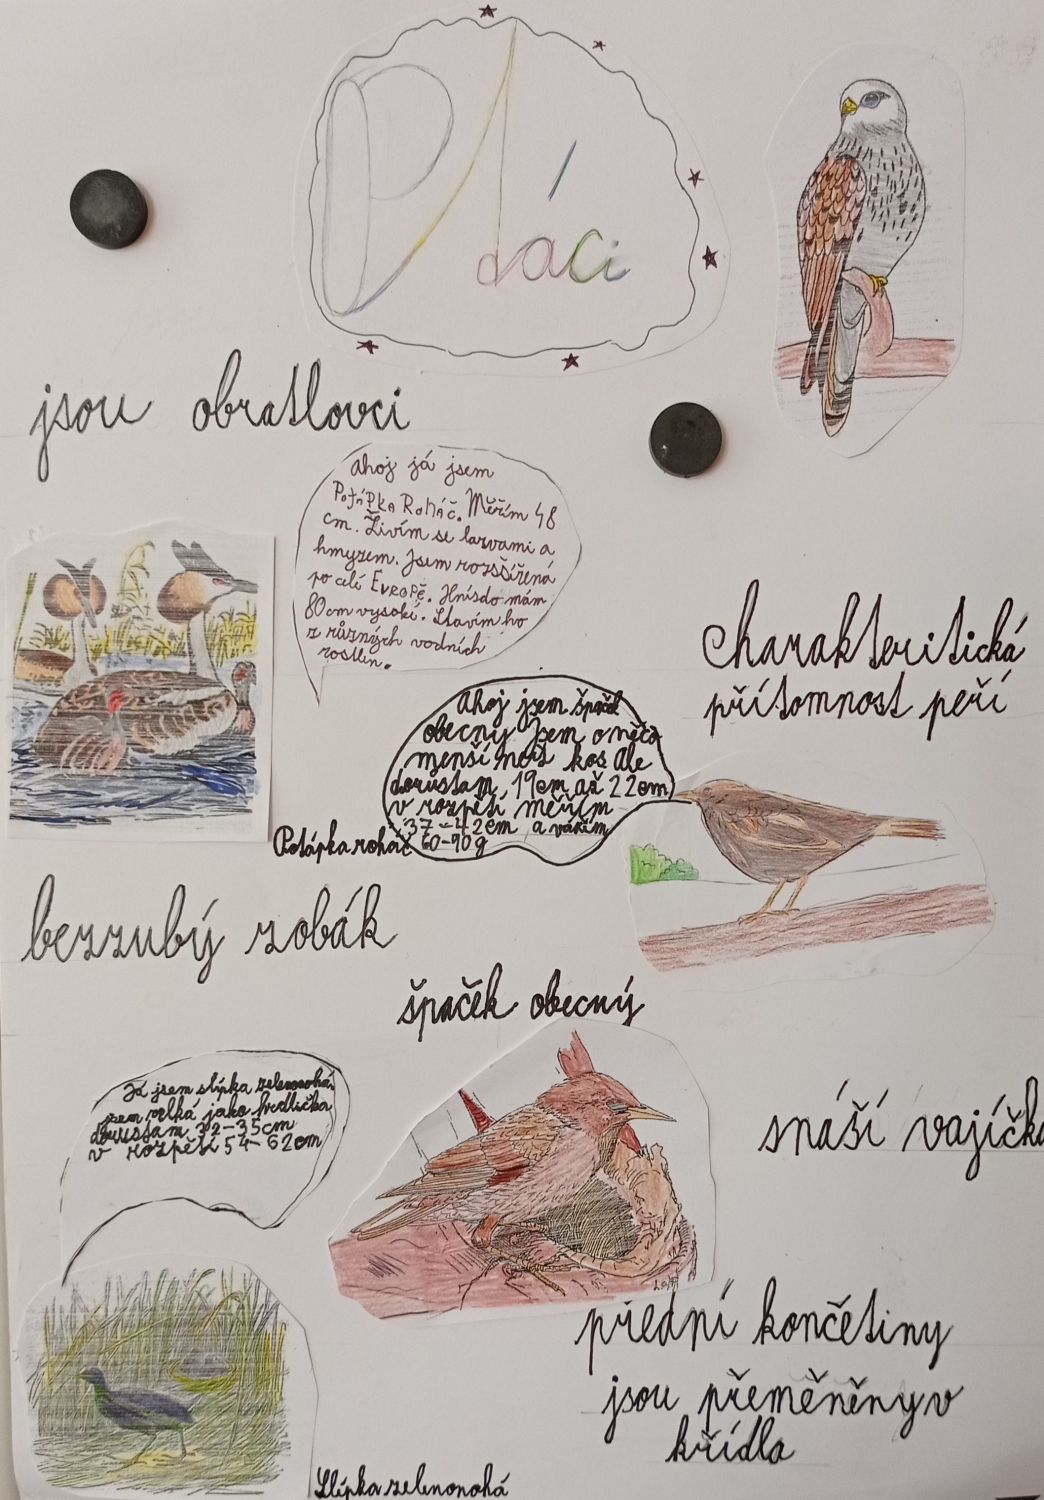 Ptáci
jsou obratlovci
Ahoj já jsem
PotáPKA RoHáč. Měřím 48
cm. Živím se larvami a
hmyzem. Jsem rozšířená
po celé EVROPě. Hnísdo mám
80cm vysoké. Stavím ho
z různých vodních
rostlin.
Charakteritická
přítomnost peří
Ahoj jsem špaček
obecný Jsem o něco
menší než kos Ale
dorůstam, 19cm až 22cm
v rozpětí měřím
37-42cm a vážím
60-90g
Potápka roháč
bezzubý zobák
špaček obecný
Já jsem slípka zelenonohá.
jsem velká jako hrdlička
dorustam 32-35cm
v rozpětí 54-62cm
snáší vajíčka
přední končetiny
jsou přeměněny v
křídla
Slípka zelenonohá